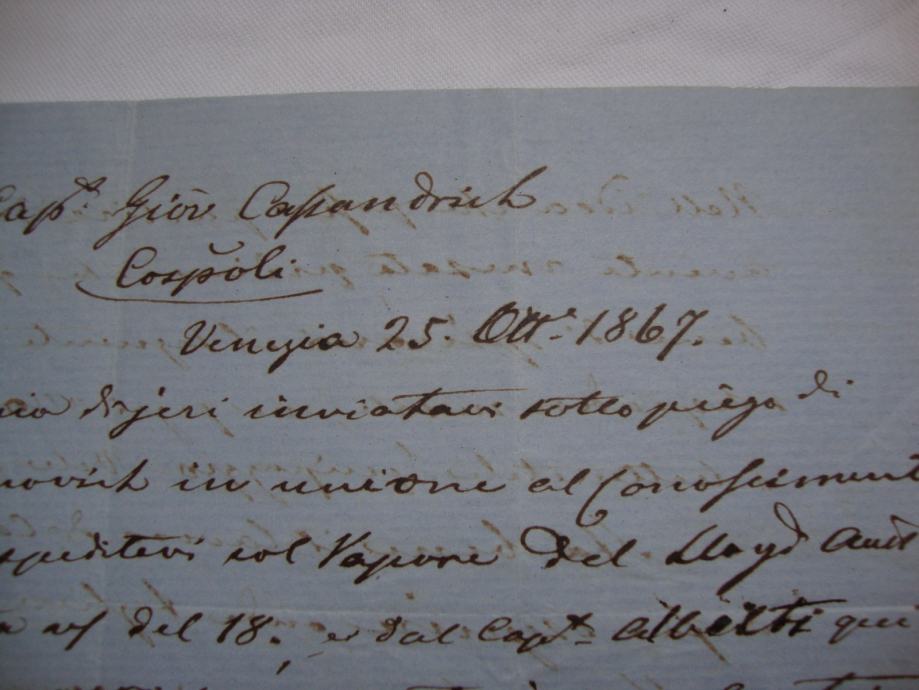 Cap.ⁿ Giov Cassandrich
Cospoli
Venezia 25. Ott.e 1867.
mia di jeri inviatavi sotto piego di
novich in unione al Conossiment
speditevi col Vapore del Lloyd Aust
del 18. e dal Cap.n Alberti qui